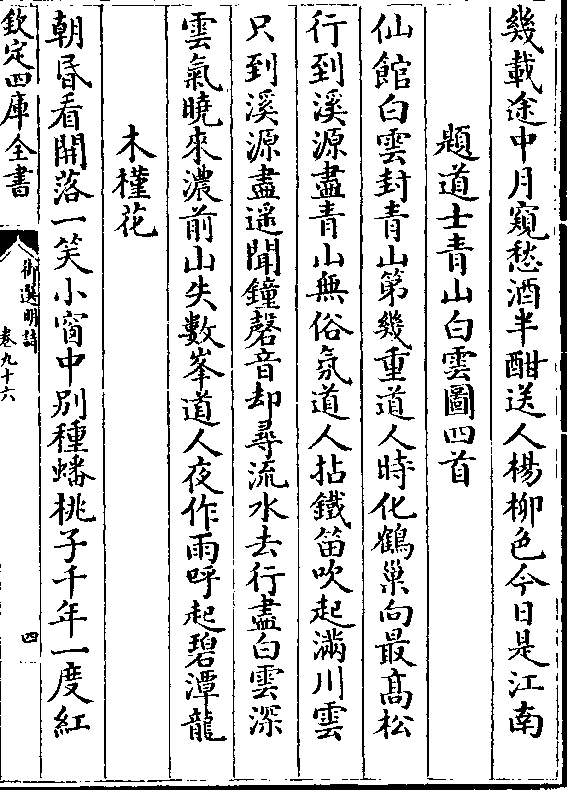 幾載途中月窺愁酒半酣送人楊柳色今日是江南
題道士青山白雲圖四首
仙館白雲封青山第幾重道人時化鶴巢向最髙松
行到溪源盡青山無俗氛道人拈鐵笛吹起滿川雲
只到溪源盡遥聞鐘磬音却尋流水去行盡白雲深
雲氣曉來濃前山失數峯道人夜作雨呼起碧潭龍
木槿花
朝昬看開落一笑小窗中别種蟠桃子千年一度紅
欽定四庫全書
御選明詩
卷九十六
四